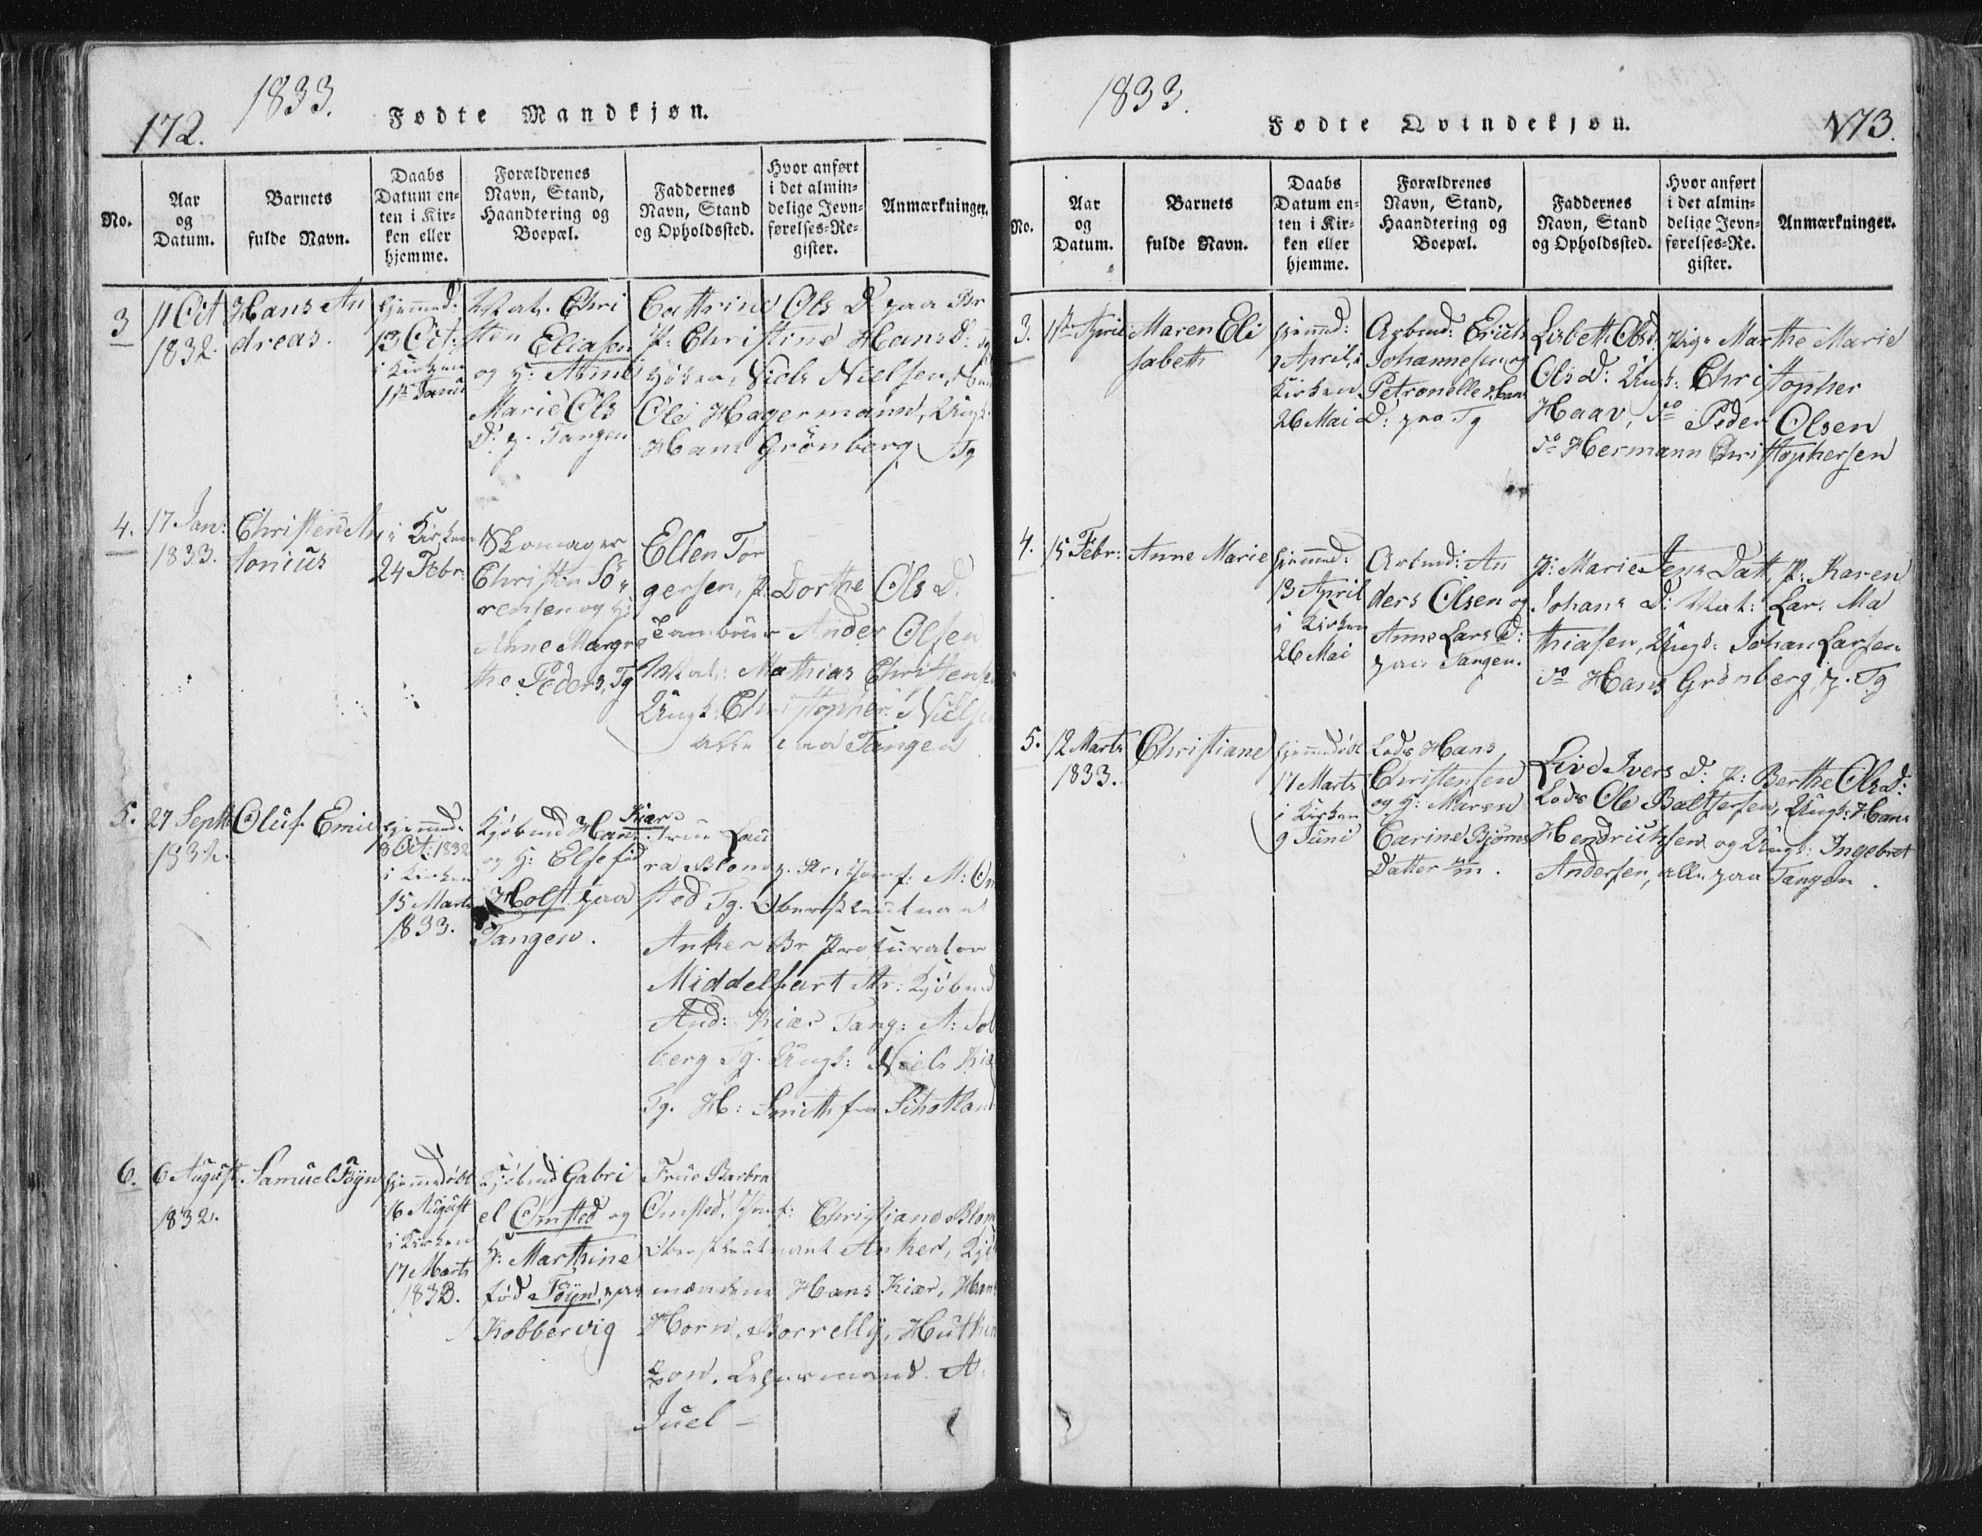 172.
1833.
Fødte Mandkjøn.
No.
Aar
og
Datum.
Barnets
fulde Navn.
Daabs
Datum en-
ten i Kir-
ken eller
hjemme.
Forældrenes
Navn, Stand,
Haandtering og
Boepæl.
Faddernes
Navn, Stand
og Opholdssted.
Hvor anført
i det almin-
delige Jevn-
førelses-Re-
gister.
Anmærkninger.
3
11 Oct
1832.
Hans An
dreas.
hjemmed:
13 Oct:
i Kirken
Mat. Chri
sten Eliasen
og H: Anne
Marie Ols
D: p. Tangen
Cathrine Ols D: paa Br
P: Christine Hans D:
Niels Nielsen,
Ole Hagermann, Ungk:
Hans Grönberg Tg
4.
17 Jan:
1833.
Christen An
tonius
i Kirken
24 Febr:
Skomager
Christen Sö
rensen og H:
Anne Margre
the Peders, Tg
Ellen Tor
gersen, P. Dorthe Ols D:
Tambour Ander Olsen
Mat: Mathias Christense
Ungk: Christopher Nielse
alle paa Tangen
5.
27 Septb
1832.
Oluf Emil
hjemmed:
8 Oct: 1832
i Kirken
15 Marts
1833.
Kjöbmd Hans Kiær
og H: Else fød
Holst paa
Tangen.
Frue Lau
ra Blom p. Br. Jomf: M: Om
sted Tg. Oberstleutnant
Anker Br Procurator
Middelfart Str: Kjöbmd
And: Kiær Tang: A: Sol
berg Tg. Ungk: Niels Kiæ
Tg. H: Smith fra Schotland
6.
6 August
1832.
Samuel Föyn
hjemmedöbt
16 August
i Kirken
17 Marts
1833.
Kjöbmd Gabri
el Omsted og
H: Marthine
fød Föyn, paa
Kobbervig
Frue Barbra
Omsted, Jomf: Christiane Blom
Oberstleutnant Anker, Kjöb
mændene Hans Kiær, Hans
Horn, Borrelly, Hutchin
son, Lehnsmand A.
Juel –
1833.
Fødte Qvindekjøn.
173.
No.
Aar
og
Datum.
Barnets
fulde Navn.
Daabs
Datum en-
ten i Kir-
ken eller
hjemme.
Forældrenes
Navn, Stand,
Haandtering og
Boepæl.
Faddernes
Navn, Stand
og Opholdssted.
Hvor anført
i det almin-
delige Jevn-
førelses-Re-
gister.
Anmærkninger.
3.
1ste April
Maren Eli
sabeth
hjemmd:
9 April, i
Kirken
26 Mai
Arbmd: Erich
Johannesen og
Petronelle Hans
D: paa Tg
Lisbeth Olsd, Pige Marthe Marie
Ols D: Ungk: Christopher
Haav, do Peder Olsen
do Hermann Christophersen
4.
15 Febr:
Anne Marie
hjemmd:
13 April
i Kirken
26 Mai
Arbmd: An
ders Olsen og
Anne Lars D:
paa Tangen.
P: Marie Jens Datt, P: Karen
Johans D: Mat: Lar: Ma
thiasen, Ungk: Johan Larsen
do Hans Grønberg, p. Tg
5.
12 Marts
1833.
Christiane
hjemmedöbt
17 Marts
i Kirken
9 Juni
Lods Hans
Christensen
og H: Maren
Carine Bjørns
Datter
Live Ivers D: P: Berthe Ols D:
Lods Ole Baltsersen, Ungk: Hans
Hendrichsen og Ungk: Ingebret
Andersen, alle paa Tangen.